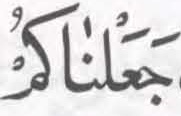 جَعَلْنٰاكُمْ